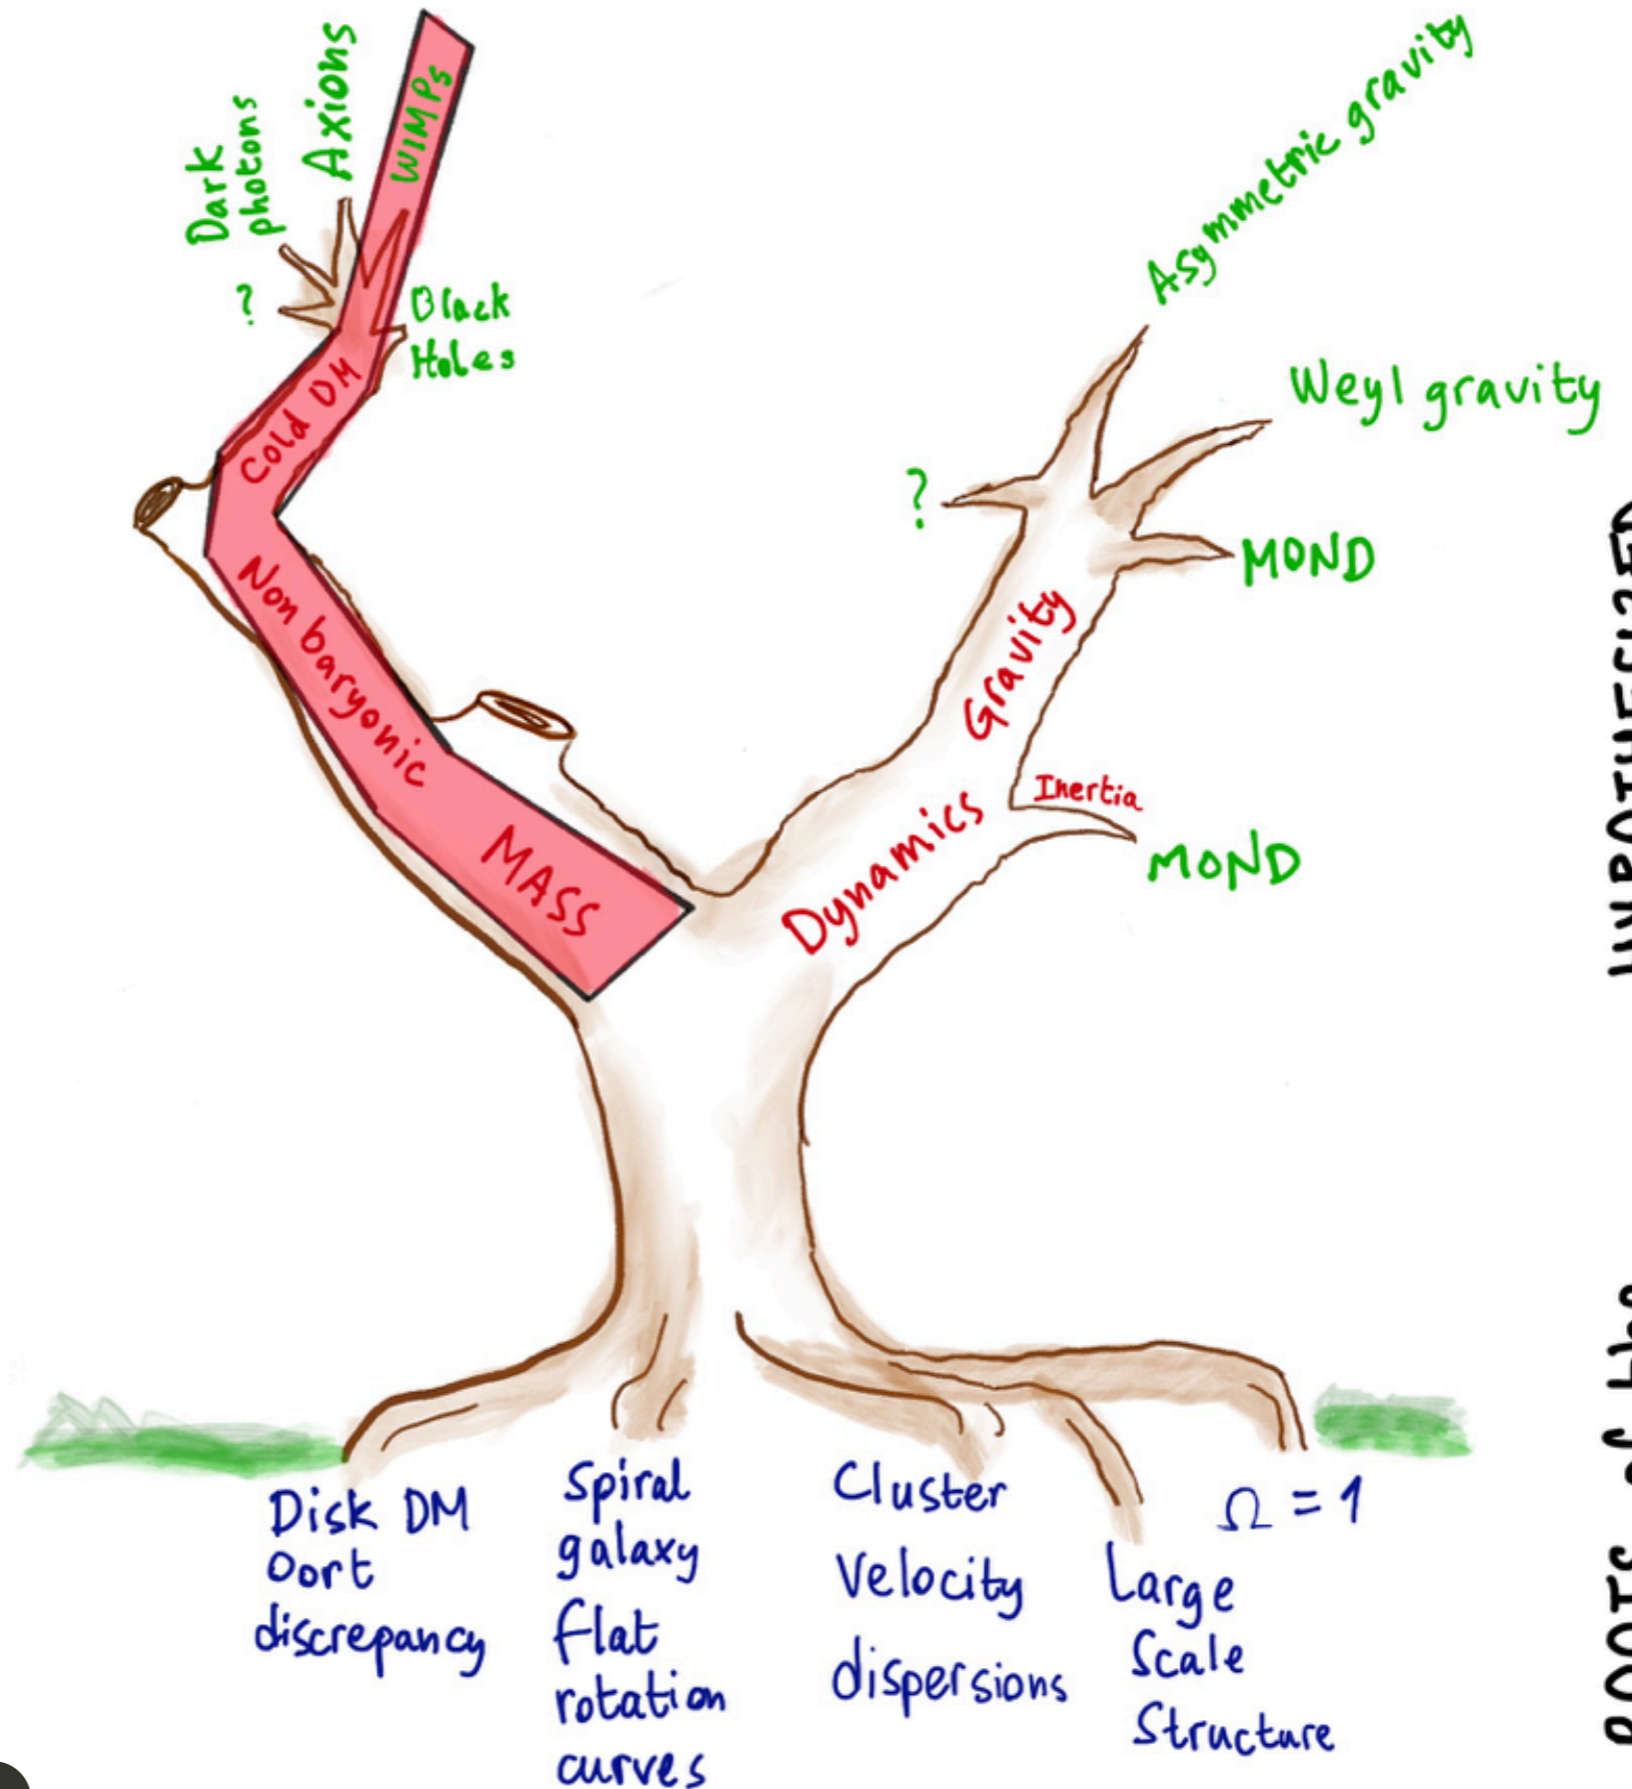 Dark
photons
Axions
WIMPs
?
Black
Holes
Cold DM
Non baryonic
MASS
Asymmetric gravity
Weyl gravity
?
MOND
Gravity
Inertia
MOND
Dynamics
Disk DM
Oort
discrepancy
Spiral
galaxy
flat
rotation
curves
Cluster
Velocity
dispersions
Large
Scale
Structure
Ω = 1
ROOTS of the